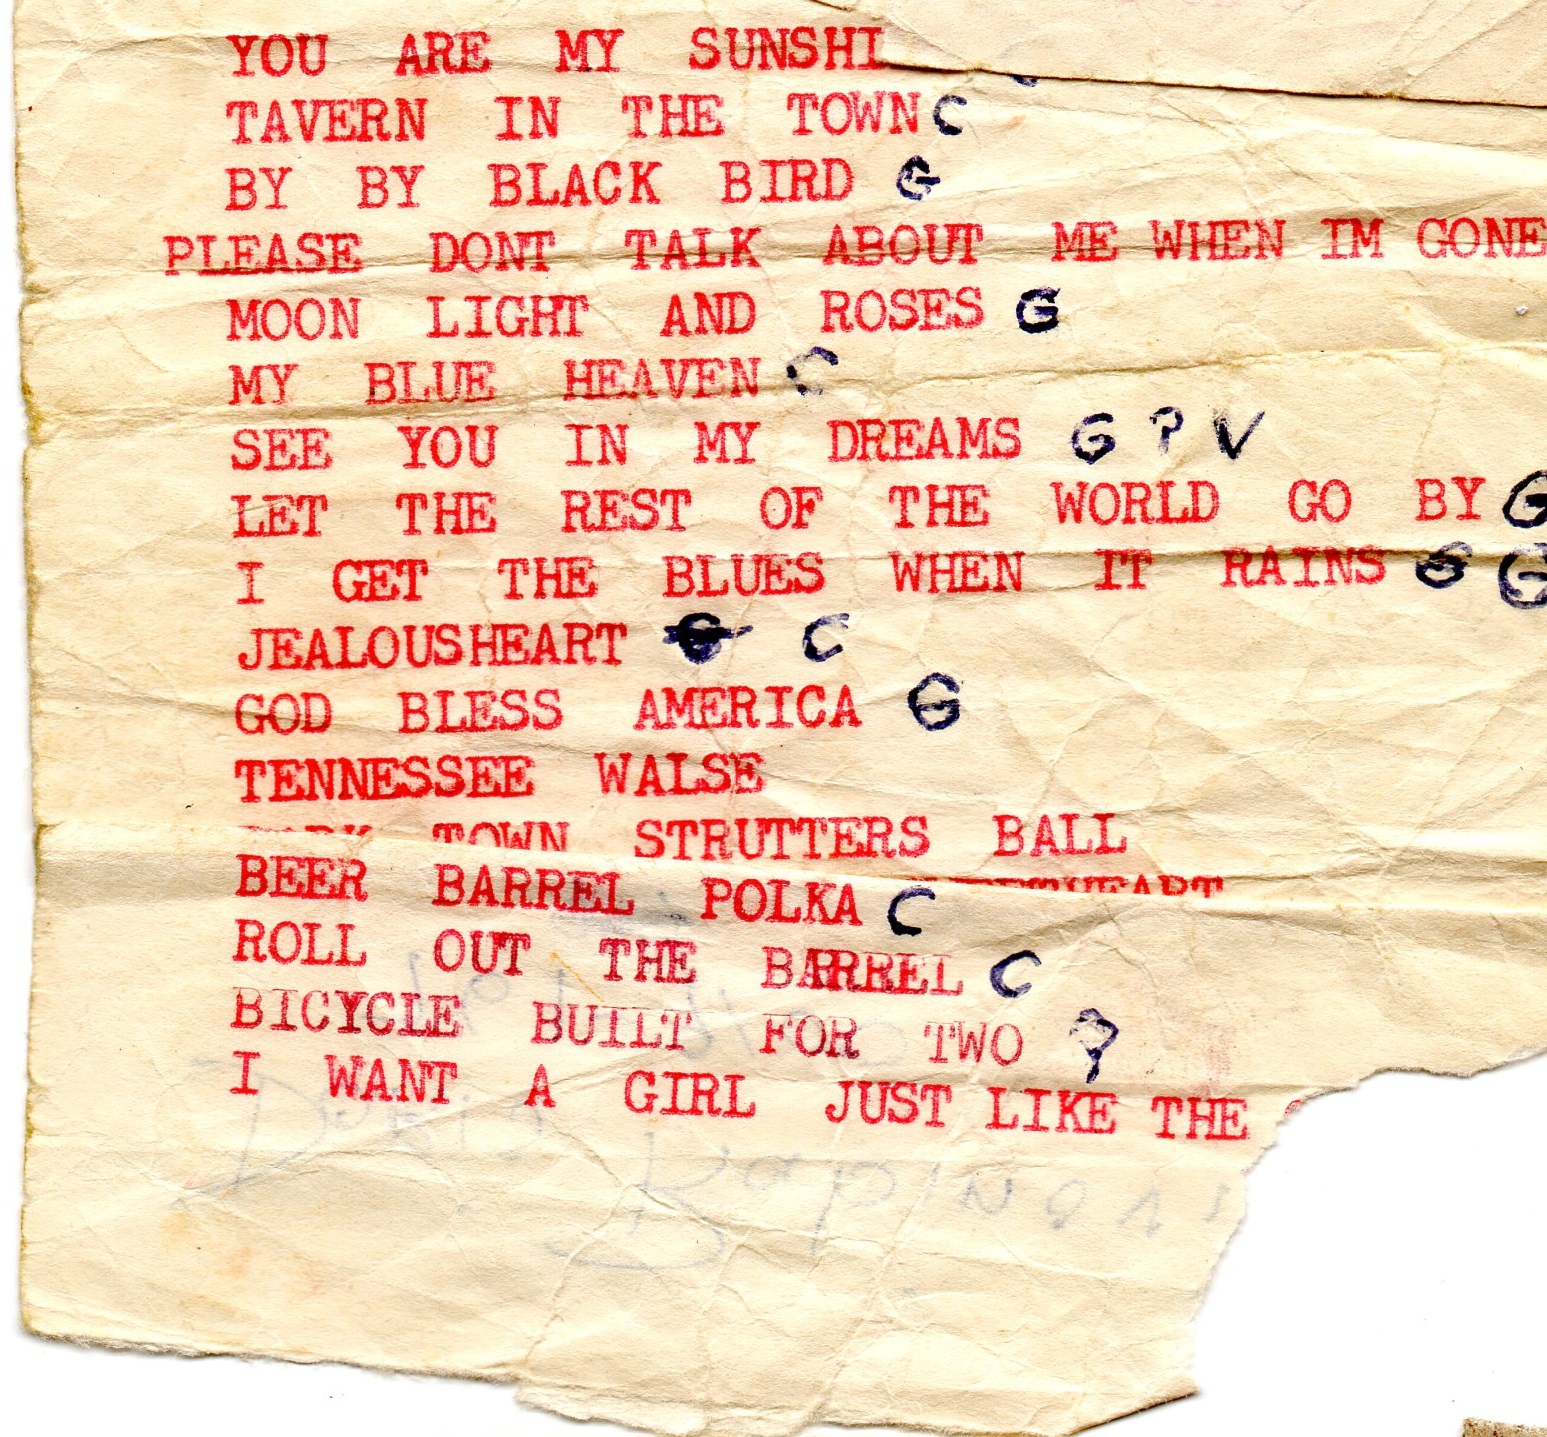 YOU ARE MY SUNSHI
TAVERN IN THE TOWN C
BY BY BLACK BIRD G
PLEASE DONT TALK ABOUT ME WHEN IM GONE
MOON LIGHT AND ROSES G
MY BLUE HEAVEN C
SEE YOU IN MY DREAMS G ? V
LET THE REST OF THE WORLD GO BY G
I GET THE BLUES WHEN IT RAINS G G
JEALOUSHEART G C
GOD BLESS AMERICA G
TENNESSEE WALSE
TOWN STRUTTERS BALL
BEER BARREL POLKA C
ROLL OUT THE BARREL C
BICYCLE BUILT FOR TWO ?
I WANT A GIRL JUST LIKE THE